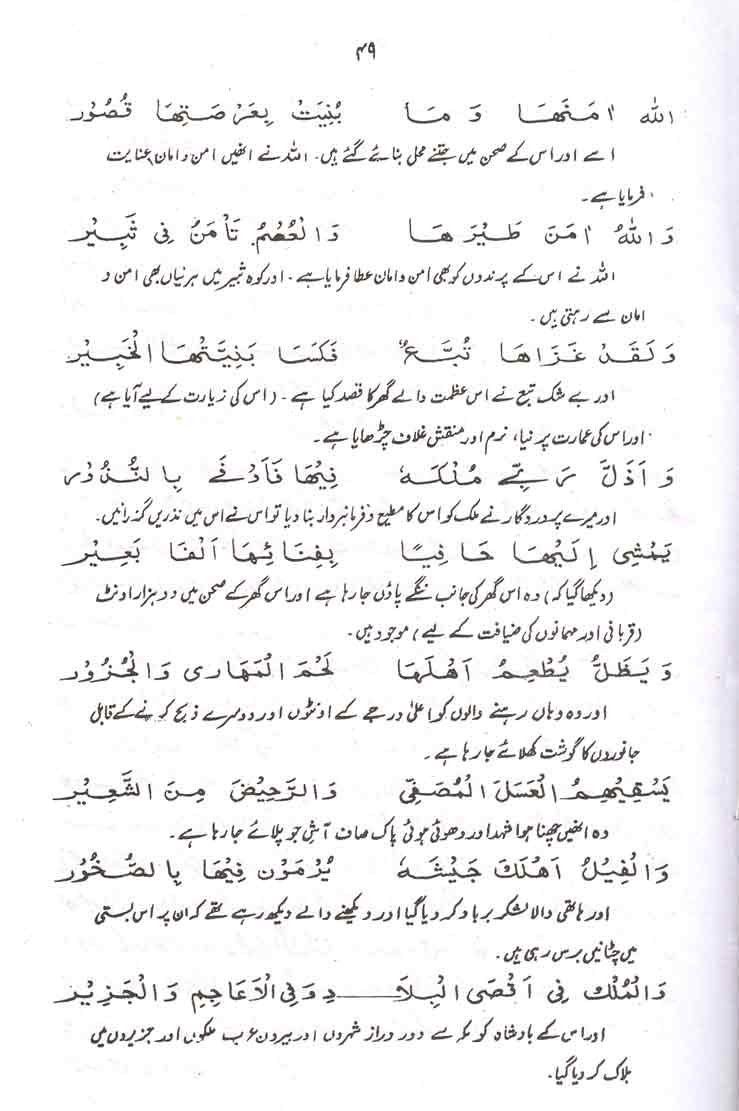 ۴۹
اللہ اٰمَنَهَا وَمَا بُنِيَتْ بِعَرْصَتِهَا قُصُوْر
اسے اور اس کے صحن میں جتنے محل بنائے گئے ہیں۔ اللہ نے انھیں امن و امان عنایت
فرمایا ہے۔
وَاللّٰهُ اٰمَنَ طَيْرَهَا وَالْعُصْمُ تَأْمَنُ فِيْ ثَبِيْر
اللہ نے اس کے پرندوں کو بھی امن و امان عطا فرمایا ہے۔ اور کوہ ثبیر میں ہرنیاں بھی امن و
امان سے رہتی ہیں۔
وَلَقَدْ غَزَاهَا تُبَّعٌ فَكَسَا بَنِيَّتَهَا الْحَبِيْر
اور بے شک تبع نے اس عظمت والے گھر کا قصد کیا ہے۔ (اس کی زیارت کے لیے آیا ہے)
اور اس کی عمارت پر نیا، نرم اور منقش غلاف چڑھایا ہے۔
وَاَذَلَّ رَبِّيْ مُلْكَهٗ فِيْهَا فَاَوْفٰى بِالنُّذُوْر
اور میرے پروردگار نے ملک کو اس کا مطیع و فرمانبردار بنا دیا تو اس نے اس میں نذریں گذرانیں۔
يَمْشِيْ اِلَيْهَا حَافِيًا بِفِنَائِهَا اَلْفَا بَعِيْر
(دیکھا گیا کہ) وہ اس گھر کی جانب ننگے پاؤں جا رہا ہے اور اس گھر کے صحن میں دو ہزار اونٹ
(قربانی اور مہمانوں کی ضیافت کے لیے) موجود ہیں۔
وَيَظَلُّ يُطْعِمُ اَهْلَهَا لَحْمَ الْمَهَارٰى وَالْجُزُوْر
اور وہ وہاں رہنے والوں کو اعلیٰ درجے کے اونٹوں اور دوسرے ذبح کرنے کے قابل
جانوروں کا گوشت کھلائے جا رہا ہے۔
يَسْقِيْهِمُ الْعَسَلَ الْمُصَفّٰى وَالرَّحِيْضَ مِنَ الشَّعِيْر
وہ انھیں چھنا ہوا شہد اور دھوئی ہوئی پاک صاف آش جو پلائے جا رہا ہے۔
وَالْفِيْلُ اَهْلَكَ جَيْشَهٗ يُرْمَوْنَ فِيْهَا بِالصُّخُوْر
اور ہاتھی والا لشکر برباد کر دیا گیا اور دیکھنے والے دیکھ رہے تھے کہ ان پر اس بستی
میں چٹانیں برس رہی ہیں۔
وَالْمُلْكُ فِيْ اَقْصَى الْبِلَادِ وَفِي الْاَعَاجِمِ وَالْجَزِيْر
اور اس کے بادشاہ کو مکہ سے دور دراز شہروں اور بیرون عرب ملکوں اور جزیروں میں
ہلاک کر دیا گیا۔